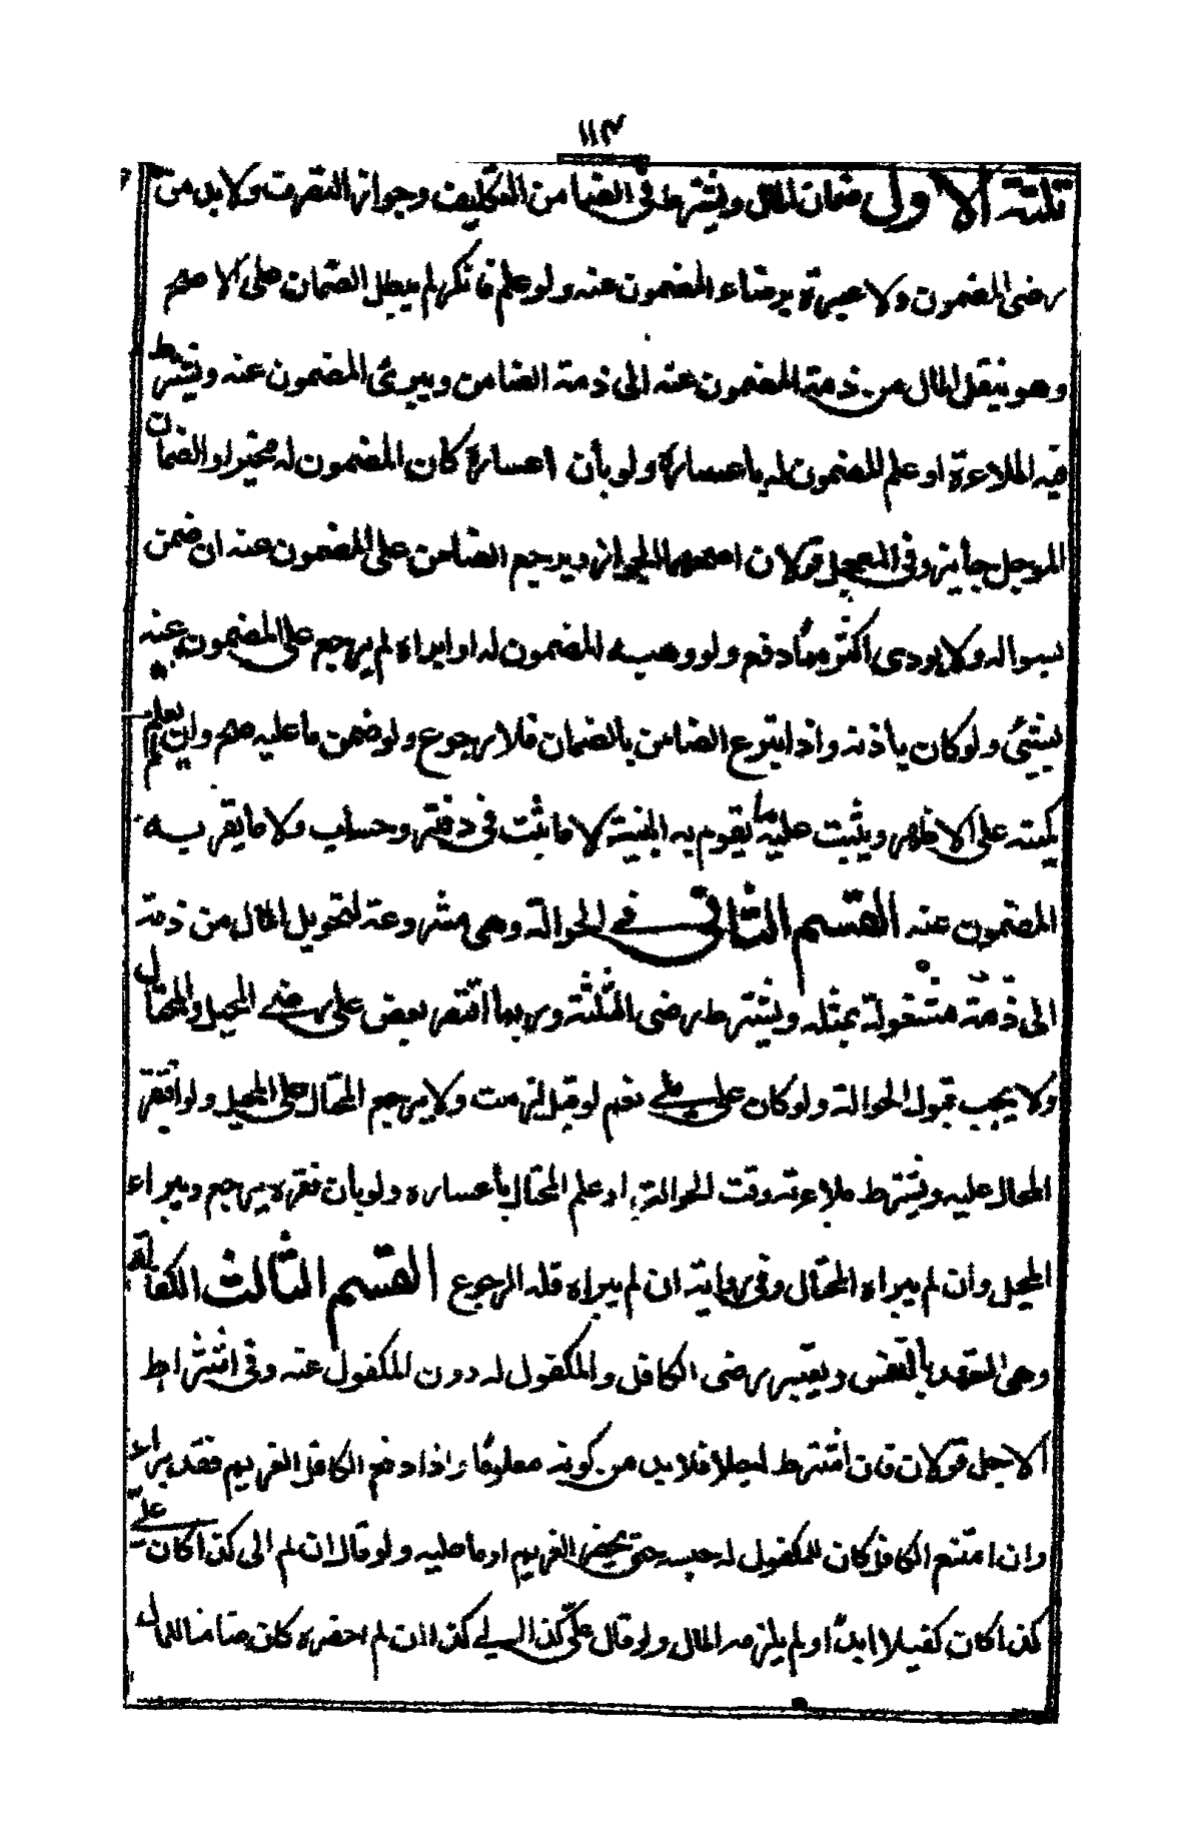 ١١٣
ثلثة الاول ضمان المال ويشترط فى الضامن التكليف وجواز التصرف ولابد من
رضى المضمون ولا عبرة برضاء المضمون عنه ولو علم فانكر لم يبطل الضمان على الاصح
وهو ينقل المال من ذمة المضمون عنه الى ذمة الضامن ويبرئ المضمون عنه ويشترط
فيه الملاءة او علم المضمون له باعساره ولو بأن اعساره كان المضمون له مخيرا والضمان
الموجل جايز وفى المعجل قولان اصحهما الجواز ويرجع الضامن على المضمون عنه ان ضمن
بسواله ولا يودى اكثر مما دفع ولو وهبه المضمون له او ابراه لم يرجع على المضمون عنه
بشيئ ولو كان باذنه واذا تبرع الضامن بالضمان فلا رجوع ولو ضمن ما عليه صح وان لم يعلم
كميته على الاظهر ويثبت عليه ما يقوم به البينة لا ما يثبت فى دفتر وحساب ولا ما يقر به
المضمون عنه القسم الثانى فى الحوالة وهى مشروعة لتحويل المال من ذمة
الى ذمة مشغولة بمثله ويشترط رضى الثلثة وربما اقتصر بعض على رضى المحيل والمحتال
ولا يجب قبول الحوالة ولو كان على ملى نعم لو قبل لزمت ولا يرجع المحتال على المحيل ولو افتقر
المحال عليه ويشترط ملاءته وقت الحوالة او علم المحتال بأعساره ولو بأن فقره يرجع ويبراء
المحيل وان لم يبراه المحتال وفى رواية ان لم يبراه فله الرجوع القسم الثالث الكفالة
وهى التعهد بالنفس ويعتبر رضى الكافل والمكفول له دون المكفول عنه وفى اشتراط
الاجل قولان فان اشترط اجلا فلابد من كونه معلوما واذا دفع الكافل الغريم فقد براء
وان امتنع الكافل كان للمكفول له حبسه حتى يحضر الغريم او ما عليه ولو قال ان لم الى كذا كان على
كذا كان كفيلا ابدا ولم يلزمه المال ولو قال على كذا الى كذا ان لم احضره كان ضامنا للمال